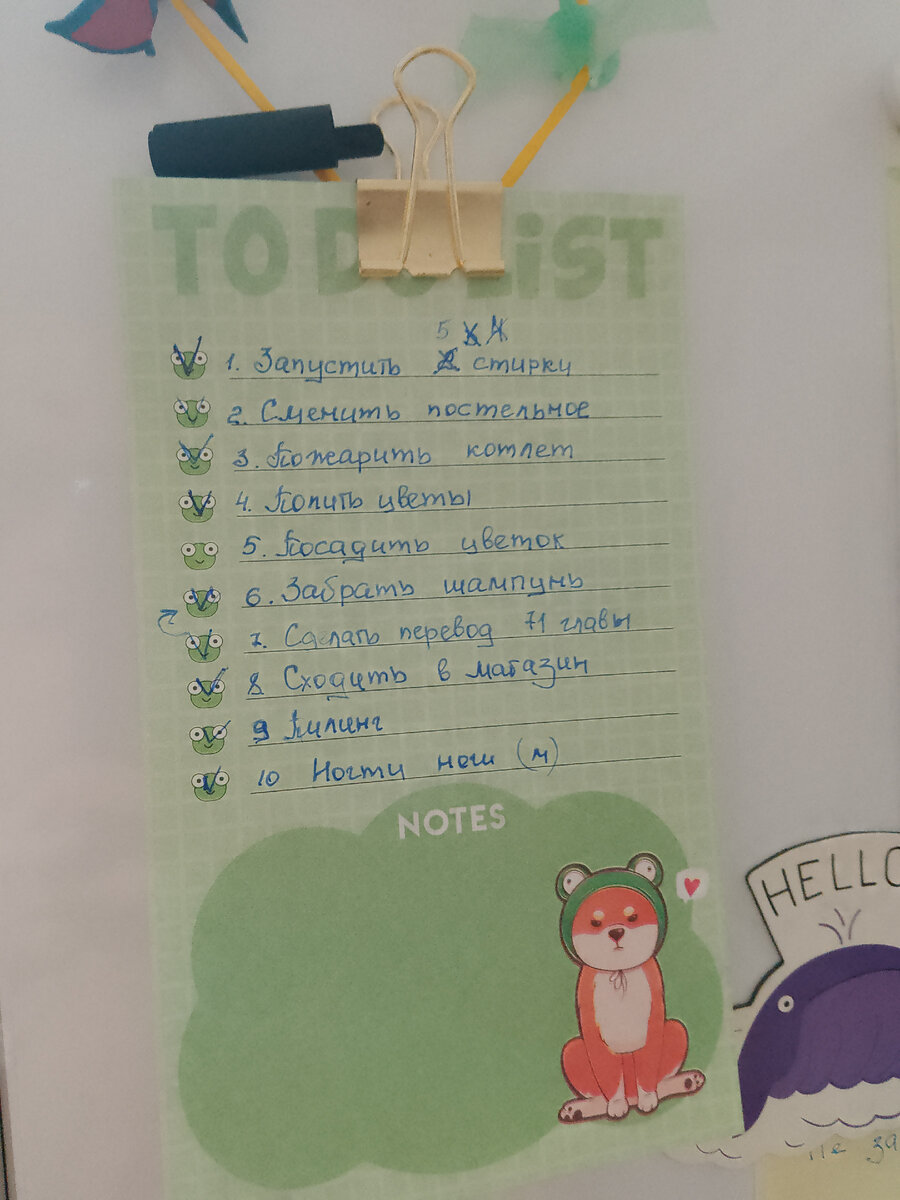 TO DO LIST
5
1. Запустить стирку
2. Сменить постельное
3. Пожарить котлет
4. Полить цветы
5. Посадить цветок
6. Забрать шампунь
7. Сделать перевод 71 главы
8 Сходить в магазин
9 Пилинг
10 Ногти ноги (м)
NOTES
HELLO
не за